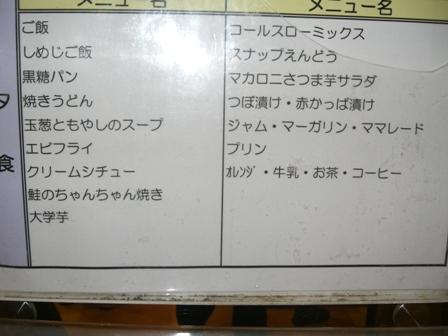 メニュー名
メニュー名
夕食
ご飯
しめじご飯
黒糖パン
焼きうどん
玉葱ともやしのスープ
エビフライ
クリームシチュー
鮭のちゃんちゃん焼き
大学芋
コールスローミックス
スナップえんどう
マカロニさつま芋サラダ
つぼ漬け・赤かっぱ漬け
ジャム・マーガリン・ママレード
プリン
ｵﾚﾝｼﾞ・牛乳・お茶・コーヒー